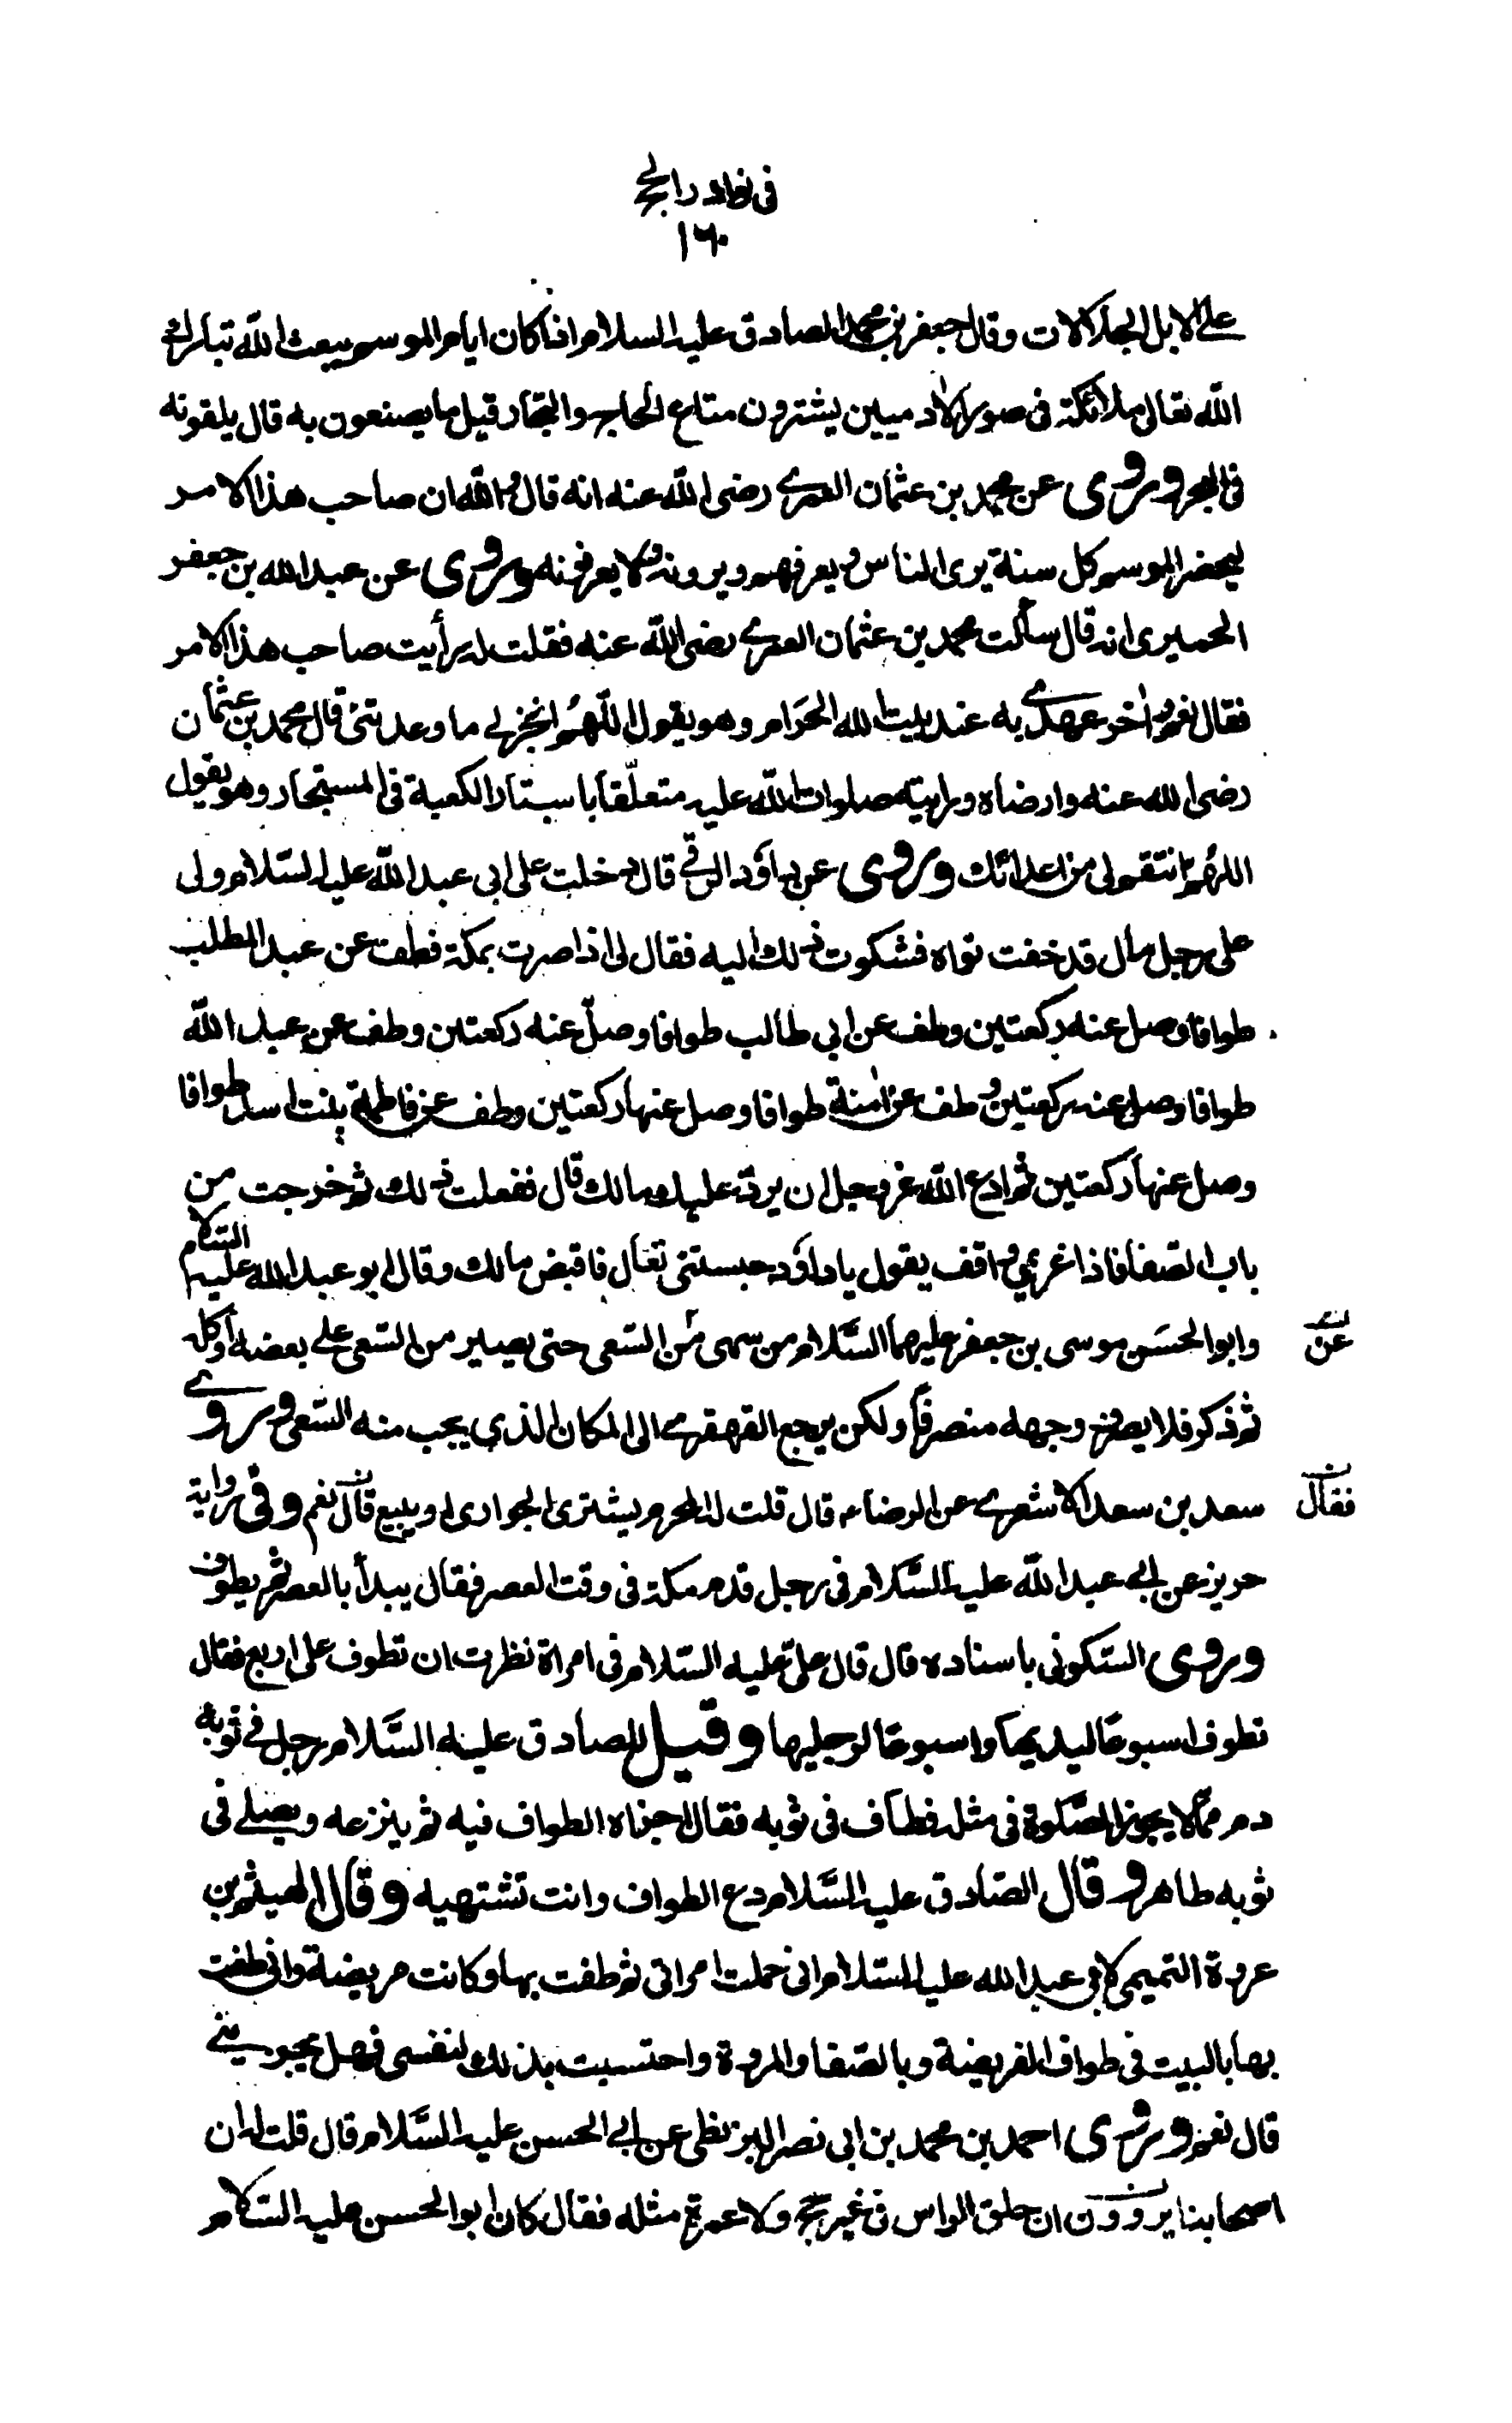 فى نوادر الحج
١٦٠
على الابل الجلالات وقال جعفر بن محمد الصادق عليه السلام اذا كان ايام الموسم بعث الله تبارك
الله تعالى ملائكة فى صور الادميين يشترون متاع الحاج والتجار قيل ما يصنعون به قال يلقونه
فى البحر وروى عن محمد بن عثمان العمرى رضى الله عنه انه قال والله ان صاحب هذا الامر
ليحضر الموسم كل سنة يرى الناس ويعرفهم ويرونه ولا يعرفونه وروى عن عبد الله بن جعفر
الحميرى انه قال سألت محمد بن عثمان العمرى رضى الله عنه فقلت له رأيت صاحب هذا الامر
فقال نعم واخر عهدى به عند بيت الله الحرام وهو يقول اللهم انجز لى ما وعدتنى قال محمد بن عثمان
رضى الله عنه وارضاه ورايته صلوات الله عليه متعلقا باستار الكعبة فى المستجار وهو يقول
اللهم انتقم لى من اعدائك وروى عن داود الرقى قال دخلت على ابى عبد الله عليه السلام ولى
على رجل مال قد خفت تواه فشكوت ذلك اليه فقال لى اذا صرت بمكة فطف عن عبد المطلب
طوافا وصل عنه ركعتين وطف عن ابى طالب طوافا وصل عنه ركعتين وطف عن عبد الله
طوافا وصل عنه ركعتين وطف عن امنة طوافا وصل عنها ركعتين وطف عن فاطمة بنت اسد طوافا
وصل عنها ركعتين ثم ادع الله عز وجل ان يرد عليك مالك قال ففعلت ذلك ثم خرجت من
باب الصفا فاذا غريمى واقف يقول يا داود حبستنى تعال فاقبض مالك وقال ابو عبد الله عليه السلام
وابو الحسن موسى بن جعفر عليهما السلام من سهى من السعى حتى يصير من السعى على بعضه او كله
عن
ثم ذكر فلا يصرف وجهه منصرفا ولكن يرجع القهقرى الى المكان الذى يجب منه السعى وروى
سعد بن سعد الاشعرى عن الرضاء قال قلت له المحرم يشترى الجوارى او يبيع قال نعم وفى رواية
فقال
حريز عن ابى عبد الله عليه السلام فى رجل قدم مكة فى وقت العصر فقال يبدأ بالعصر ثم يطوف
وروى السكونى باسناده قال قال على عليه السلام فى امراة نظرت ان تطوف على اربع فقال
تطوف اسبوعا ليديها واسبوعا لرجليها وقيل للصادق عليه السلام رجل فى ثوبه
دم مما لا يجوز الصلوة فى مثله فطاف فى ثوبه فقال اجزاه الطواف فيه ثم ينزعه ويصلى فى
ثوب طاهر وقال الصادق عليه السلام دع الطواف وانت تشتهيه وقال الهيثم بن
عروة التميمى لابى عبد الله عليه السلام انى حملت امراتى ثم طفت بها وكانت مريضة وانى طفت
بها بالبيت فى طواف الفريضة وبالصفا والمروة واحتسبت بذلك لنفسى فهل يجزينى
قال نعم وروى احمد بن محمد بن ابى نصر البزنطى عن ابى الحسن عليه السلام قال قلت له ان
اصحابنا يروون ان حلق الراس فى غير حج ولا عمرة مثله فقال كان ابو الحسن عليه السلام